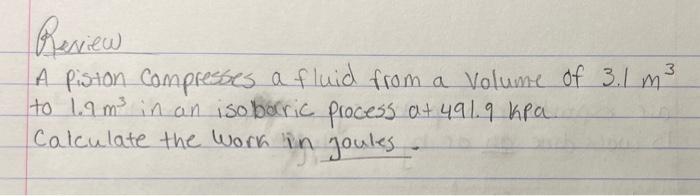 Review
A piston compresses a fluid from a volume of 3.1 m³
to 1.9 m³ in an isobaric process at 491.9 kPa.
Calculate the work in joules.